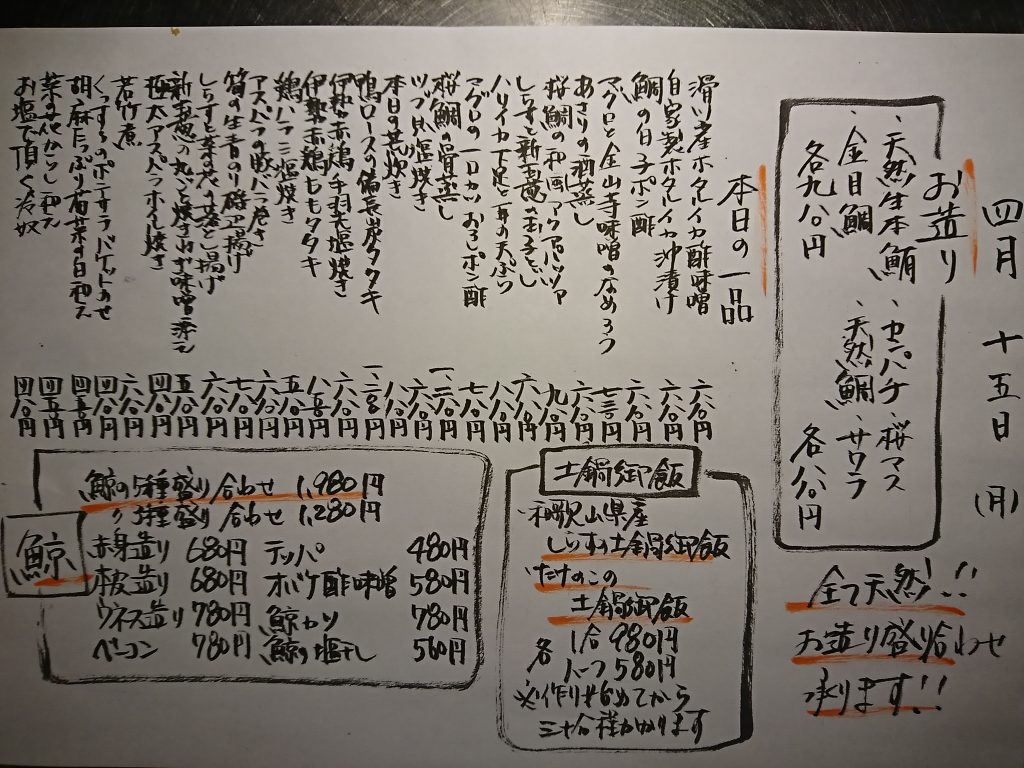 四月 十五日 (月)
お造り
・天然生本鮪 ・セバチ ・桜マス
・金目鯛 ・天然鯛 ・サワラ
各九八〇円 各六八〇円
全て天然!!
お造り盛り合わせ
承ります!!
本日の一品
滑川産ホタルイカ酢味噌 六八〇円
自家製ホタルイカ沖漬け 六八〇円
鯛の白子ポン酢 六八〇円
マグロと金山寺味噌のなめろう 七三〇円
あさりの酒蒸し 六八〇円
桜鯛の和風アクアパッツァ 九八〇円
しらすと新
ハリイカ下足 天ぷら 八八〇円
マグロの一口カツおろしポン酢 七八〇円
桜鯛の骨蒸し
ツブ貝塩焼き 六八〇円
本日の荒炊き 八八〇円
鴨ロースの備長炭タタキ
伊勢赤鶏手羽塩焼き 六八〇円
伊勢赤鶏ももタタキ
鶏ハラミ塩焼き 五八〇円
アスパラの豚バラ巻き 六八〇円
筍の生青のり磯辺揚げ 七八〇円
しらすと 落とし揚げ 六八〇円
新玉葱の丸ごと焼き 味噌
極太アスパラホイル焼き 四八〇円
若竹煮 六八〇円
バゲットのせ 四八〇円
胡麻たっぷり 白和え
菜の花 和え
お塩で頂く冷奴 四八〇円
土鍋御飯
・和歌山県産
しらすの土鍋御飯
・たけのこの
土鍋御飯
各 1合 980円
ハーフ 580円
※作り始めてから
三十分程かかります
鯨
鯨の5種盛り合わせ 1,980円
〃 3種盛り合わせ 1,280円
赤身造り 680円 テッパ 480円
本皮造り 680円 オバケ酢味噌 580円
ウネス造り 780円 鯨カツ 780円
ベーコン 780円 鯨の塩干し 560円